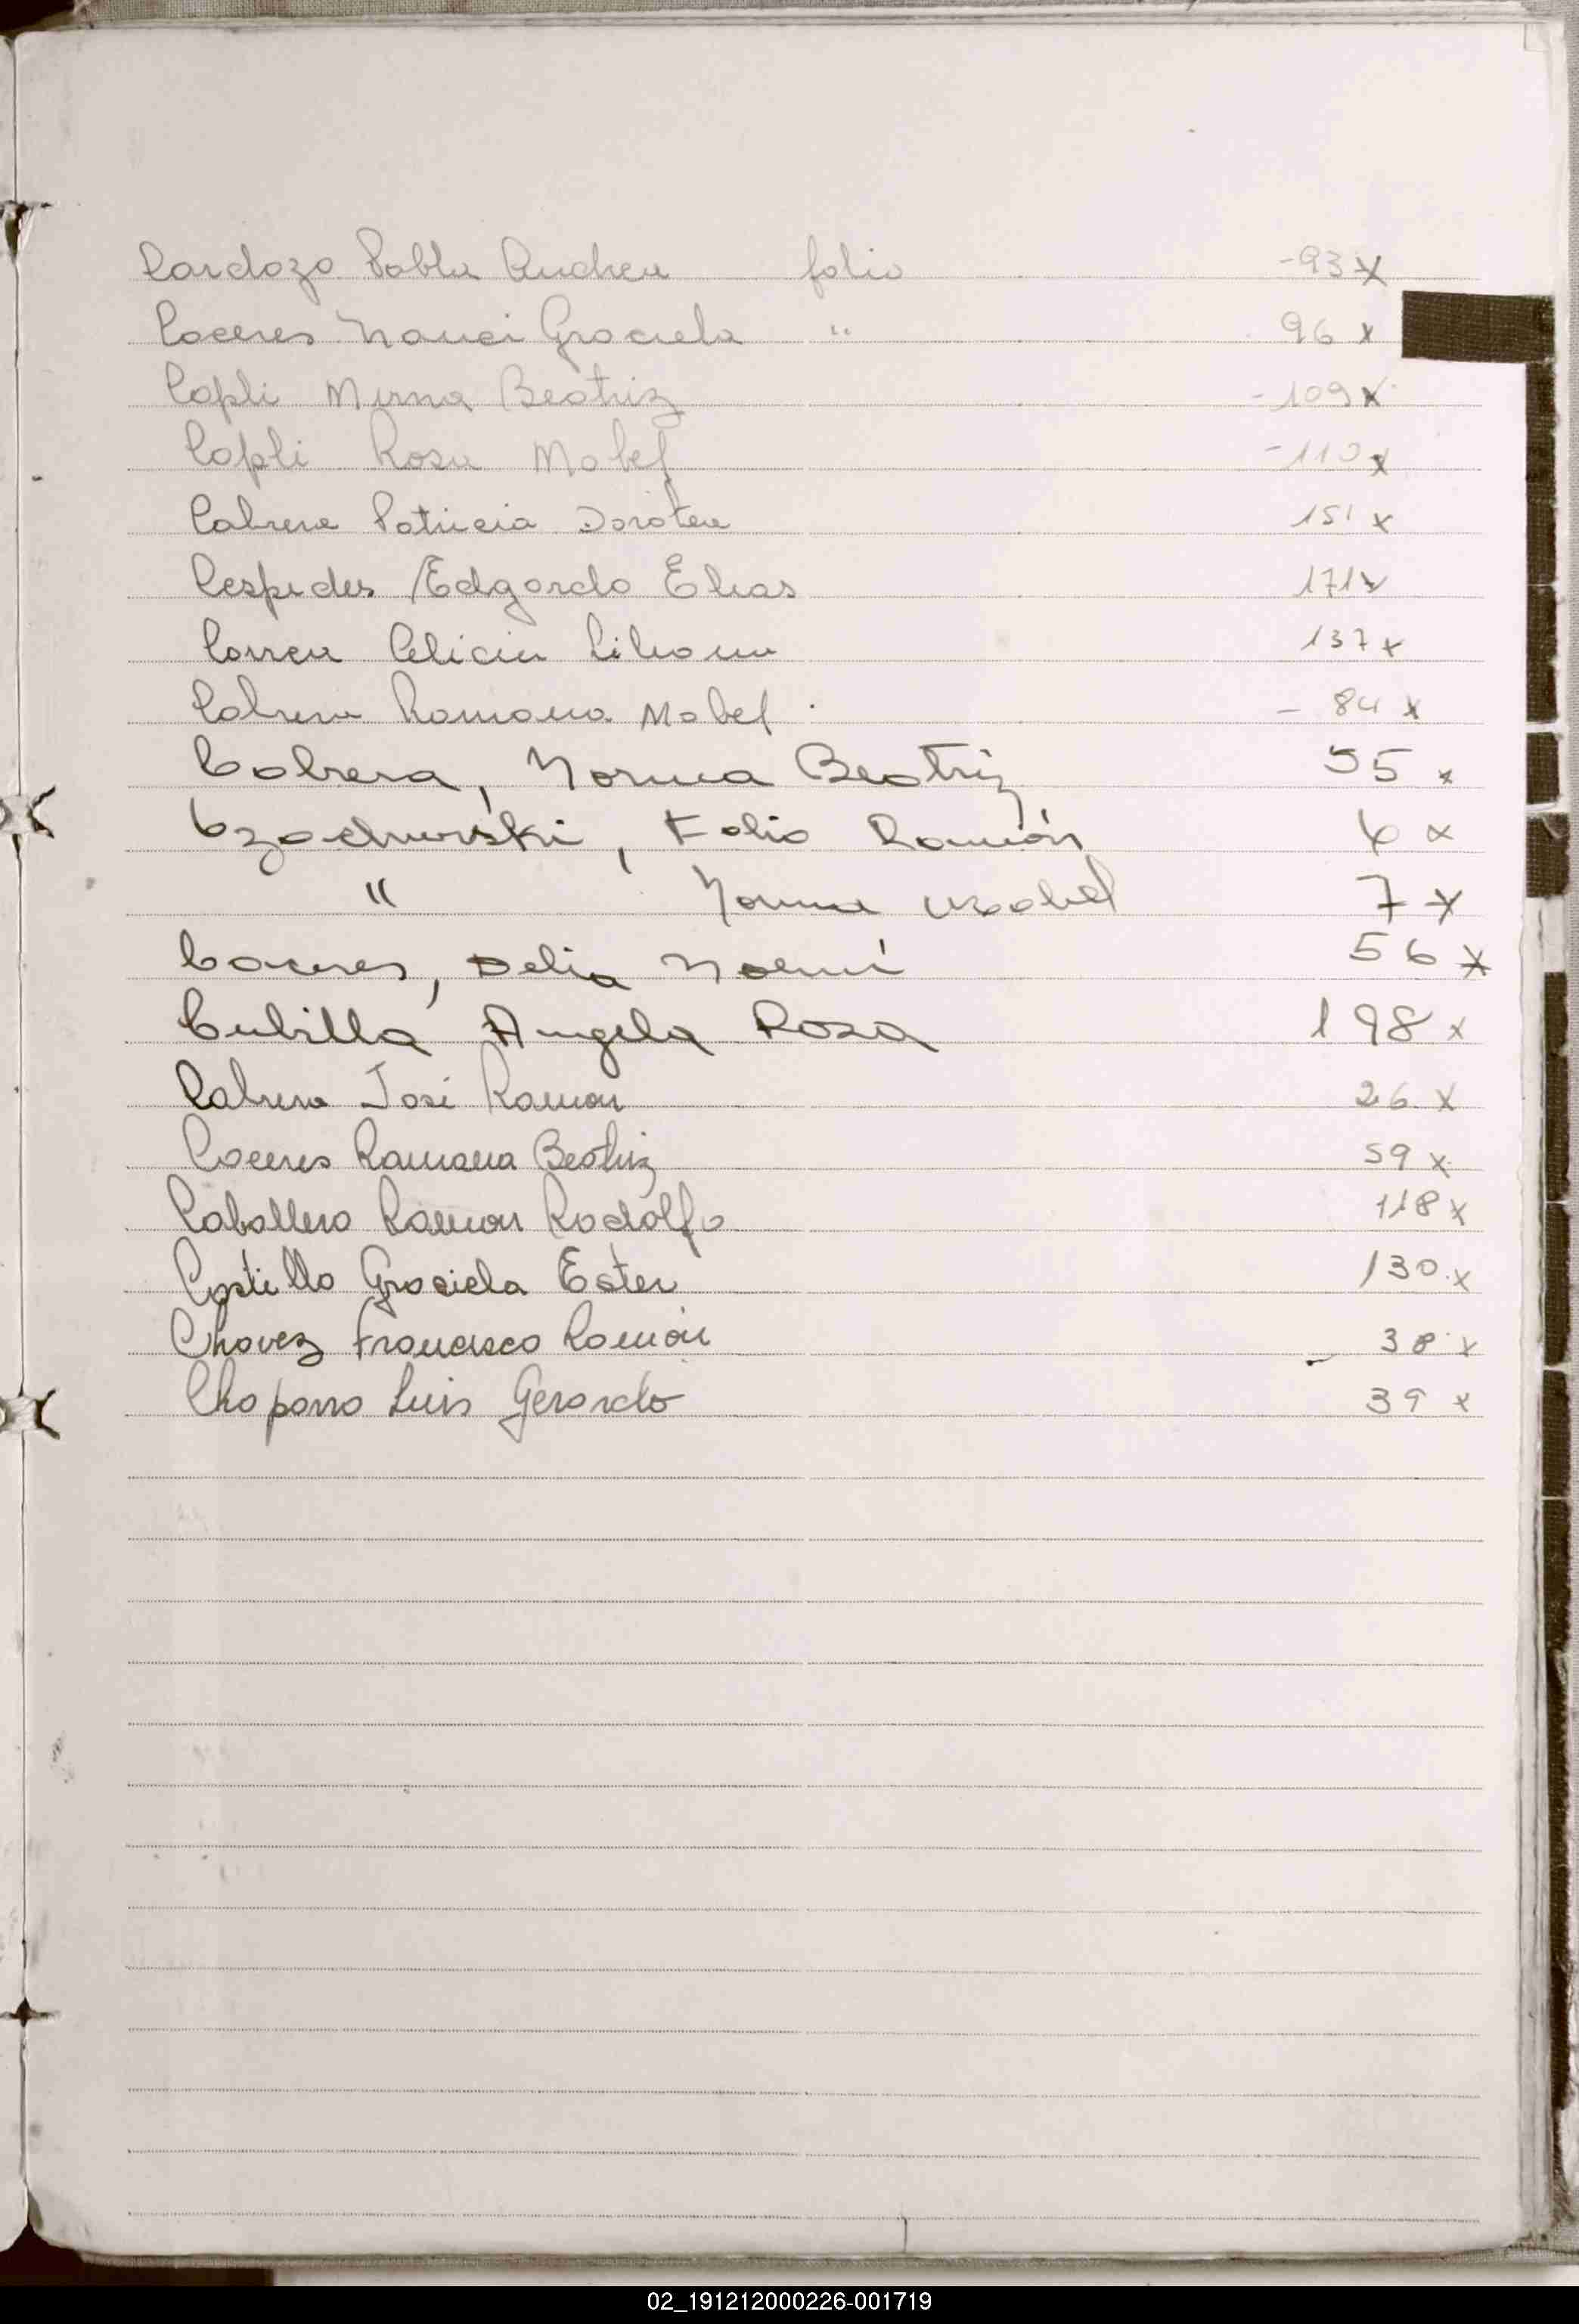 Cardozo Pabla Andrea folio -93 x
Caceres Nanci Graciela " 96 x
Capli Mirna Beatriz -109 x
Capli Rosa Mabel -110 x
Cabrera Patricia Dorotea 151 x
Cespedes Edgardo Elias 171 x
Correa Alicia Liliana 137 x
Cabrera Ramona Mabel - 84 x
Cabrera, Norma Beatriz 55 x
Fabio Ramón 6 x
" Norma Isabel 7 x
Caceres, Delia Noemí 56 x
Cubilla Angela Rosa 198 x
Cabrera José Ramon 26 x
Caceres Ramona Beatriz 59 x
Caballero Ramon Rodolfo 118 x
Castillo Graciela Ester 130 x
Chavez Francisco Ramón - 38 x
Chaparro Luis Gerardo 39 x
02_191212000226-001719